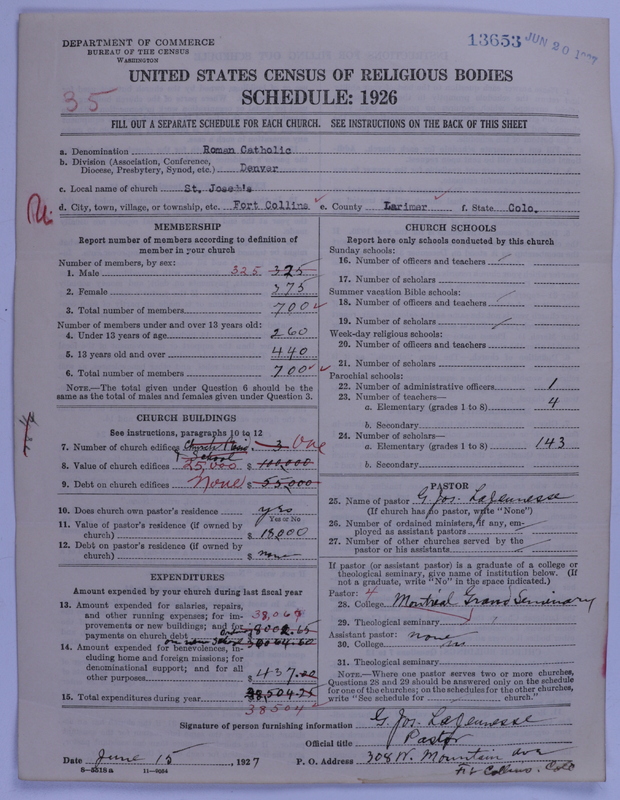 DEPARTMENT OF COMMERCE
BUREAU OF THE CENSUS
WASHINGTON
13653 JUN 20 1927
UNITED STATES CENSUS OF RELIGIOUS BODIES
SCHEDULE: 1926
35
FILL OUT A SEPARATE SCHEDULE FOR EACH CHURCH. SEE INSTRUCTIONS ON THE BACK OF THIS SHEET
a. Denomination Roman Catholic
b. Division (Association, Conference,
Diocese, Presbytery, Synod, etc.) Denver
c. Local name of church St. Joseh's
d. City, town, village, or township, etc. Fort Collins e. County Larimer f. State Colo.
MEMBERSHIP
Report number of members according to definition of
member in your church
Number of members, by sex:
1. Male 325 325
2. Female 375
3. Total number of members 700
Number of members under and over 13 years old:
4. Under 13 years of age 260
5. 13 years old and over 440
6. Total number of members 700
NOTE.—The total given under Question 6 should be the
same as the total of males and females given under Question 3.
CHURCH BUILDINGS
See instructions, paragraphs 10 to 12
7. Number of church edifices 3 One
School
8. Value of church edifices 25,000 $ 110,000
9. Debt on church edifices None $ 55,000
10. Does church own pastor's residence yes
Yes or No
11. Value of pastor's residence (if owned by
church) $ 18000
12. Debt on pastor's residence (if owned by
church) $ none
EXPENDITURES
Amount expended by your church during last fiscal year
13. Amount expended for salaries, repairs,
and other running expenses; for im-
provements or new buildings; and for
payments on church debt 38,067
on new school
14. Amount expended for benevolences, in-
cluding home and foreign missions; for
denominational support; and for all
other purposes $ 437.00
15. Total expenditures during year $ 38,504.25
38504
CHURCH SCHOOLS
Report here only schools conducted by this church
Sunday schools:
16. Number of officers and teachers
17. Number of scholars
Summer vacation Bible schools:
18. Number of officers and teachers
19. Number of scholars
Week-day religious schools:
20. Number of officers and teachers
21. Number of scholars
Parochial schools:
22. Number of administrative officers 1
23. Number of teachers—
a. Elementary (grades 1 to 8) 4
b. Secondary
24. Number of scholars—
a. Elementary (grades 1 to 8) 143
b. Secondary
PASTOR
25. Name of pastor G. Jos. LaJeunesse
(If church has no pastor, write "None")
26. Number of ordained ministers, if any, em-
ployed as assistant pastors
27. Number of other churches served by the
pastor or his assistants
If pastor (or assistant pastor) is a graduate of a college or
theological seminary, give name of institution below. (If
not a graduate, write "No" in the space indicated.)
Pastor: 4
28. College Montréal Grand Seminary
29. Theological seminary
Assistant pastor: none
30. College
31. Theological seminary
NOTE.—Where one pastor serves two or more churches,
Questions 28 and 29 should be answered only on the schedule
for one of the churches; on the schedules for the other churches,
write "See schedule for church."
Signature of person furnishing information G. Jos. LaJeunesse
Official title Pastor
Date June 15, 1927 P. O. Address 308 W. Mountain ave
Ft Collins. Colo
S—5318a 11—9054